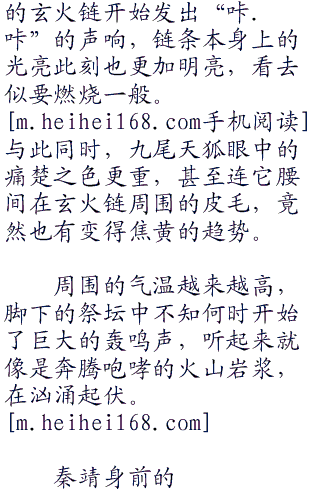 的玄火链开始发出“咔.
咔”的声响，链条本身上的
光亮此刻也更加明亮，看去
似要燃烧一般。
[m.heihei168.com手机阅读]
与此同时，九尾天狐眼中的
痛楚之色更重，甚至连它腰
间在玄火链周围的皮毛，竟
然也有变得焦黄的趋势。
周围的气温越来越高，
脚下的祭坛中不知何时开始
了巨大的轰鸣声，听起来就
像是奔腾咆哮的火山岩浆，
在汹涌起伏。
[m.heihei168.com]
秦靖身前的